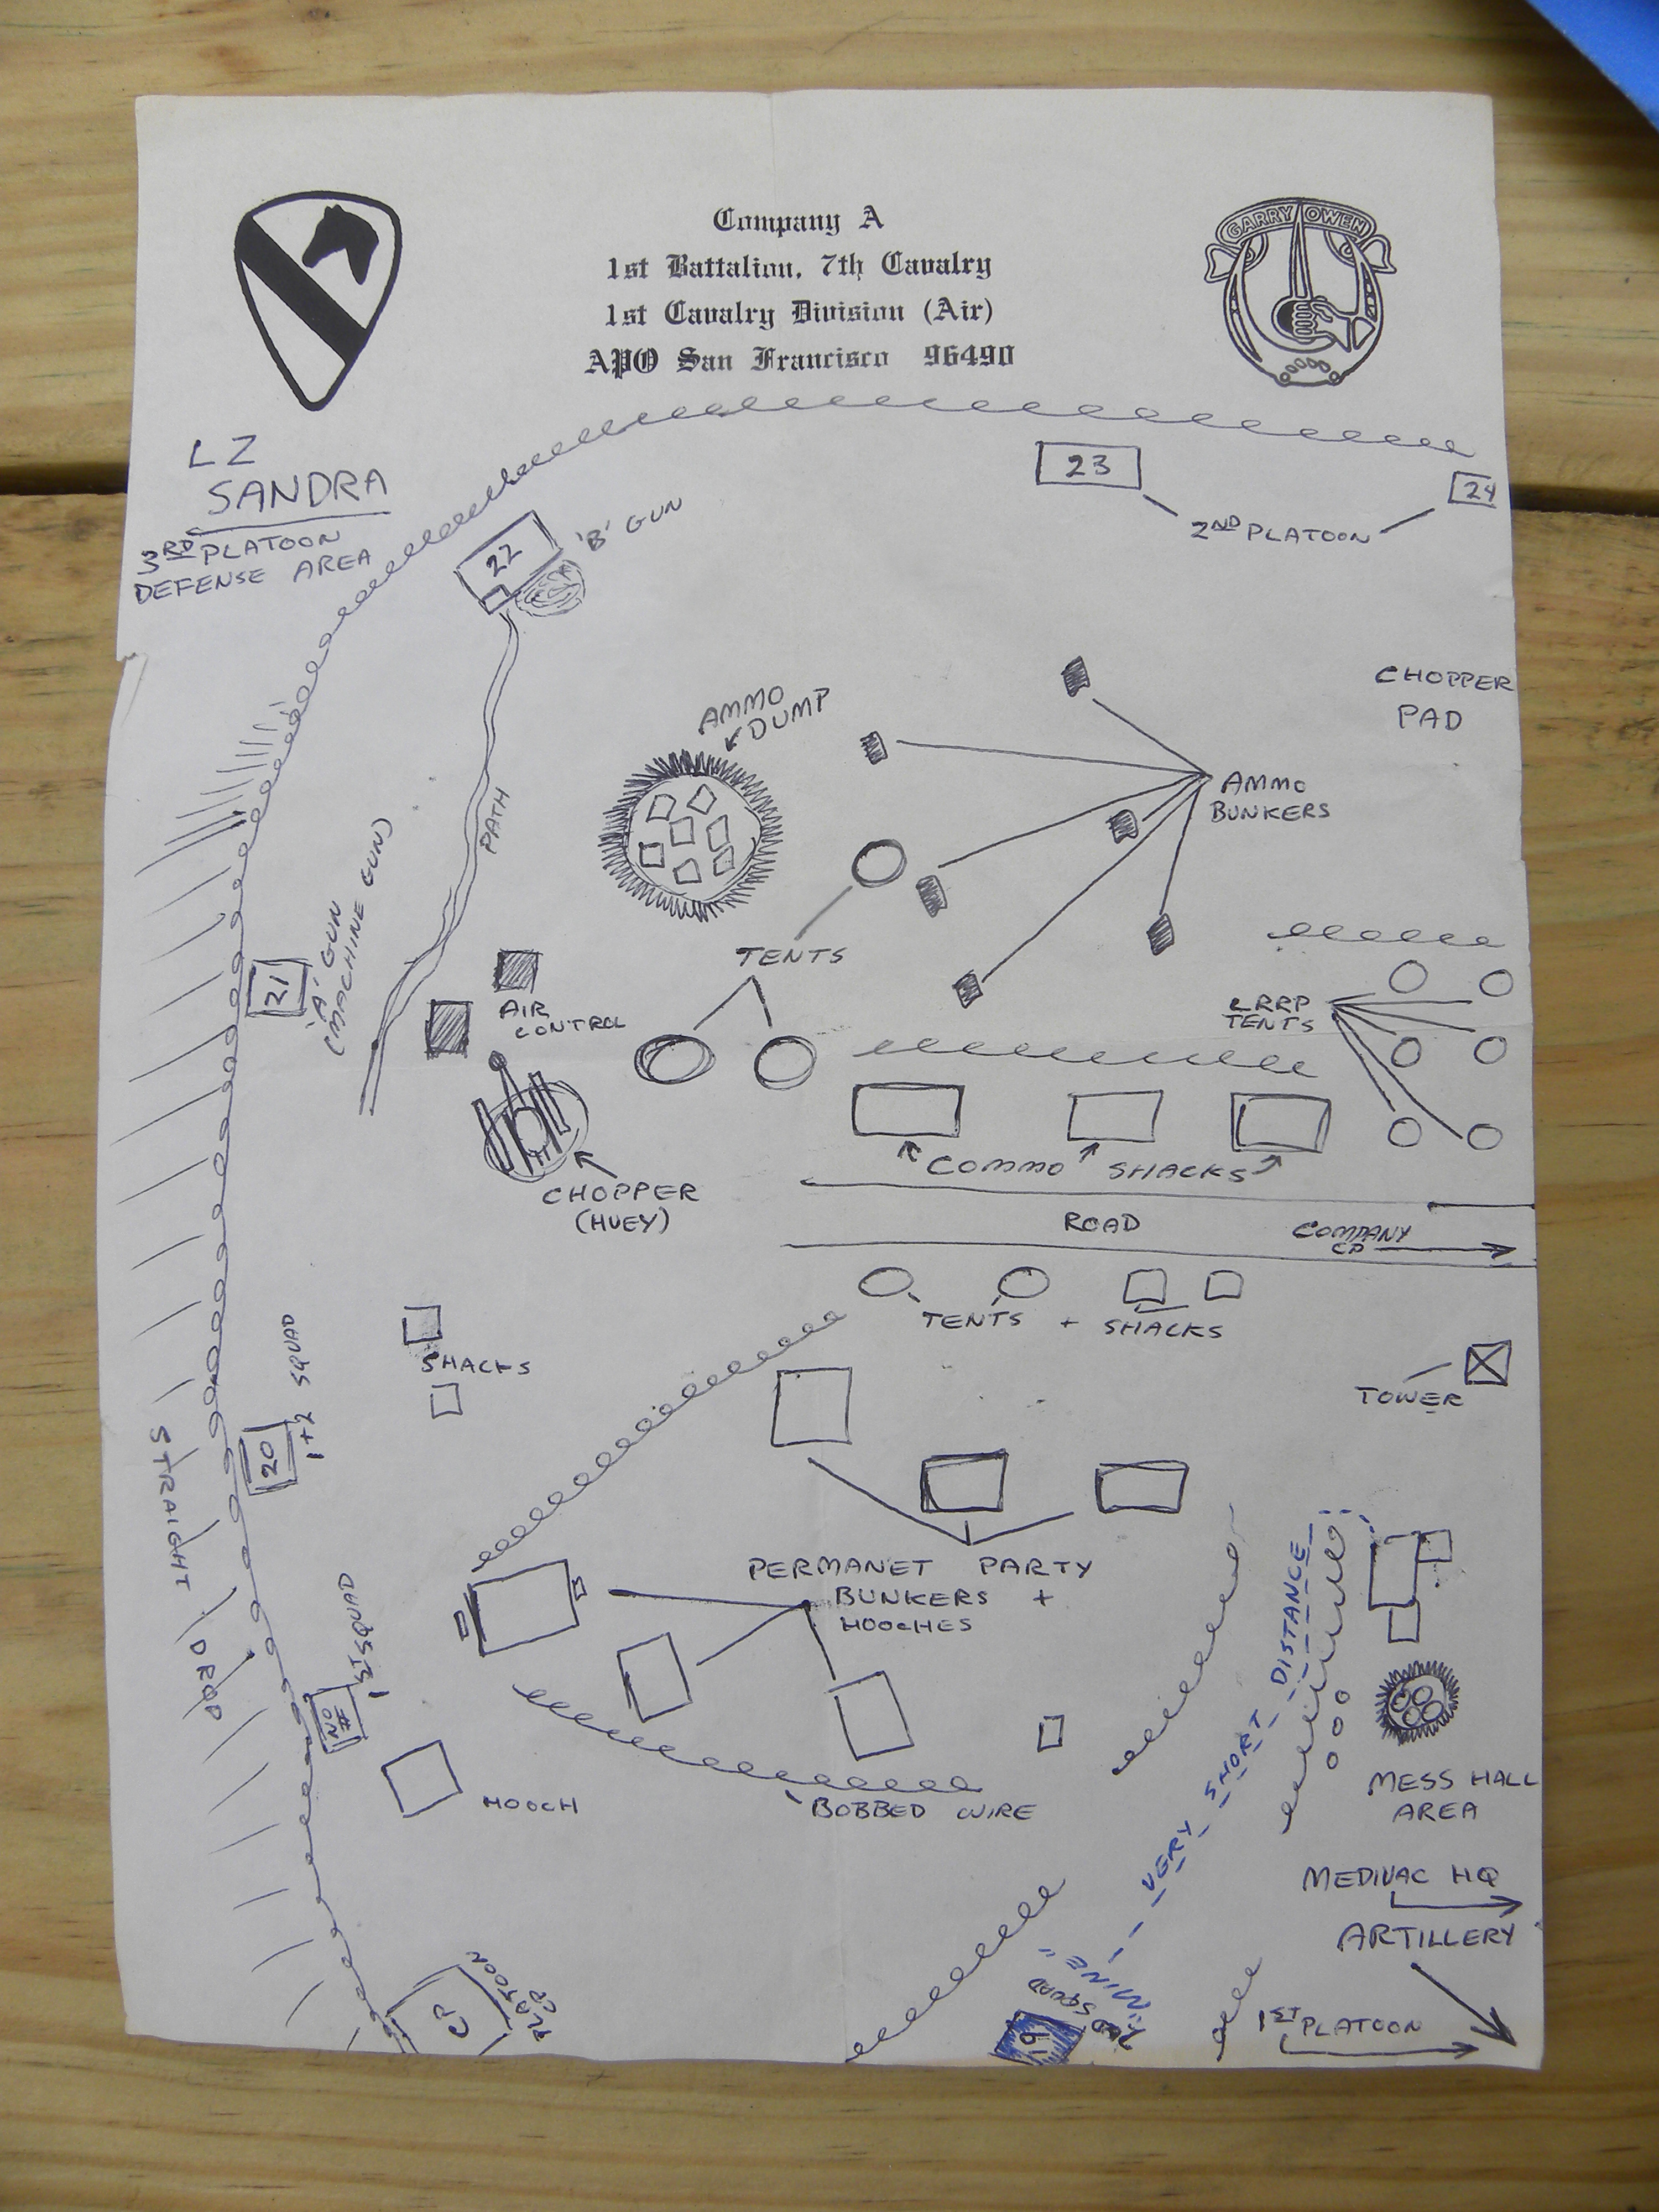 GARRY OWEN
Company A
1st Battalion, 7th Cavalry
1st Cavalry Division (Air)
APO San Francisco 96490
LZ
SANDRA
3RD PLATOON
DEFENSE AREA
22
'B' GUN
23
24
2ND PLATOON
CHOPPER
PAD
AMMO
DUMP
AMMO
BUNKERS
PATH
21
'A' GUN
(MACHINE GUN)
TENTS
AIR
CONTROL
LRRP
TENTS
COMMO SHACKS
CHOPPER
(HUEY)
ROAD
COMPANY
CP
TENTS + SHACKS
SHACKS
TOWER
20
1+2 SQUAD
STRAIGHT DROP
PERMANET PARTY
BUNKERS +
HOOCHES
VERY SHORT DISTANCE
NO
#
1ST SQUAD
HOOCH
BOBBED WIRE
MESS HALL
AREA
MEDIVAC HQ
ARTILLERY
1ST PLATOON
CP
PLATOON
CP
19
SQUAD
"MINE"